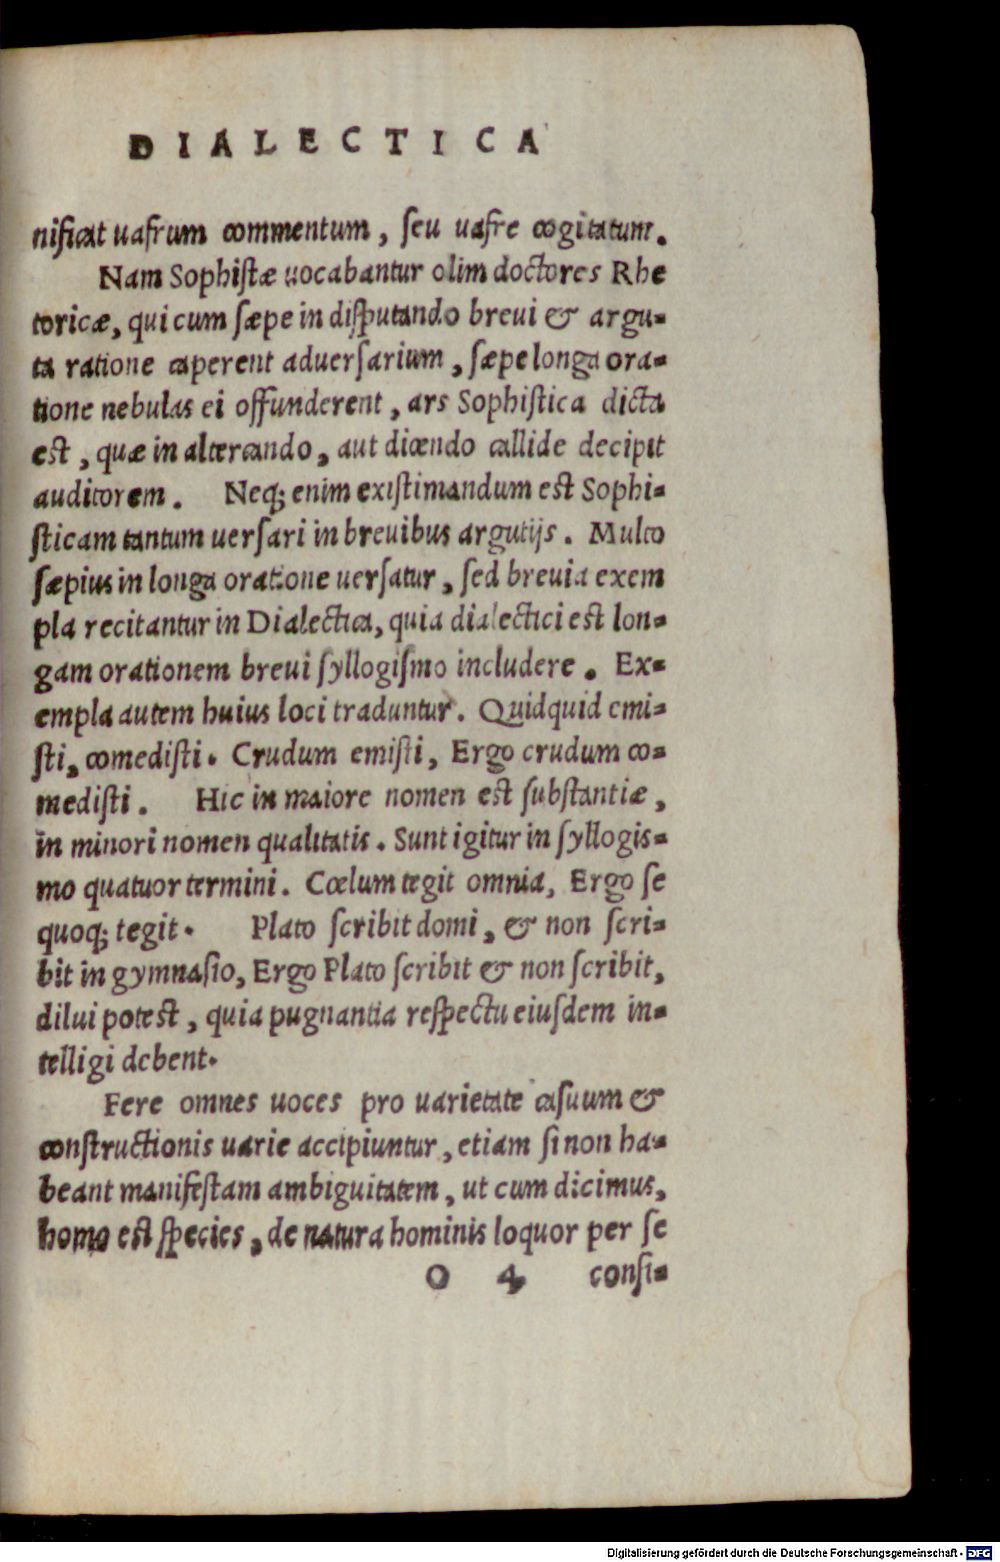 DIALECTICA
nificat uafrum commentum, ſeu uafre cogitatum.
Nam Sophiſtæ uocabantur olim doctores Rhe
toricæ, qui cum ſæpe in diſputando breui & argu-
ta ratione caperent aduerſarium, ſæpe longa ora-
tione nebulas ei offunderent, ars Sophiſtica dicta
eſt, quæ in altercando, aut dicendo callide decipit
auditorem. Neq; enim exiſtimandum eſt Sophi-
ſticam tantum uerſari in breuibus argutijs. Multo
ſæpius in longa oratione uerſatur, ſed breuia exem
pla recitantur in Dialectica, quia dialectici eſt lon-
gam orationem breui ſyllogiſmo includere. Ex-
empla autem huius loci traduntur. Quidquid emi-
ſti, comediſti. Crudum emiſti, Ergo crudum co-
mediſti. Hic in maiore nomen eſt ſubſtantiæ,
in minori nomen qualitatis. Sunt igitur in ſyllogis-
mo quatuor termini. Cœlum tegit omnia, Ergo ſe
quoq; tegit. Plato ſcribit domi, & non ſcri-
bit in gymnaſio, Ergo Plato ſcribit & non ſcribit,
dilui poteſt, quia pugnantia reſpectu eiuſdem in-
telligi debent.
Fere omnes uoces pro uarietate caſuum &
conſtructionis uarie accipiuntur, etiam ſi non ha-
beant manifeſtam ambiguitatem, ut cum dicimus,
homo eſt ſpecies, de natura hominis loquor per ſe
O 4 conſi-
Digitalisierung gefördert durch die Deutsche Forschungsgemeinschaft - DFG